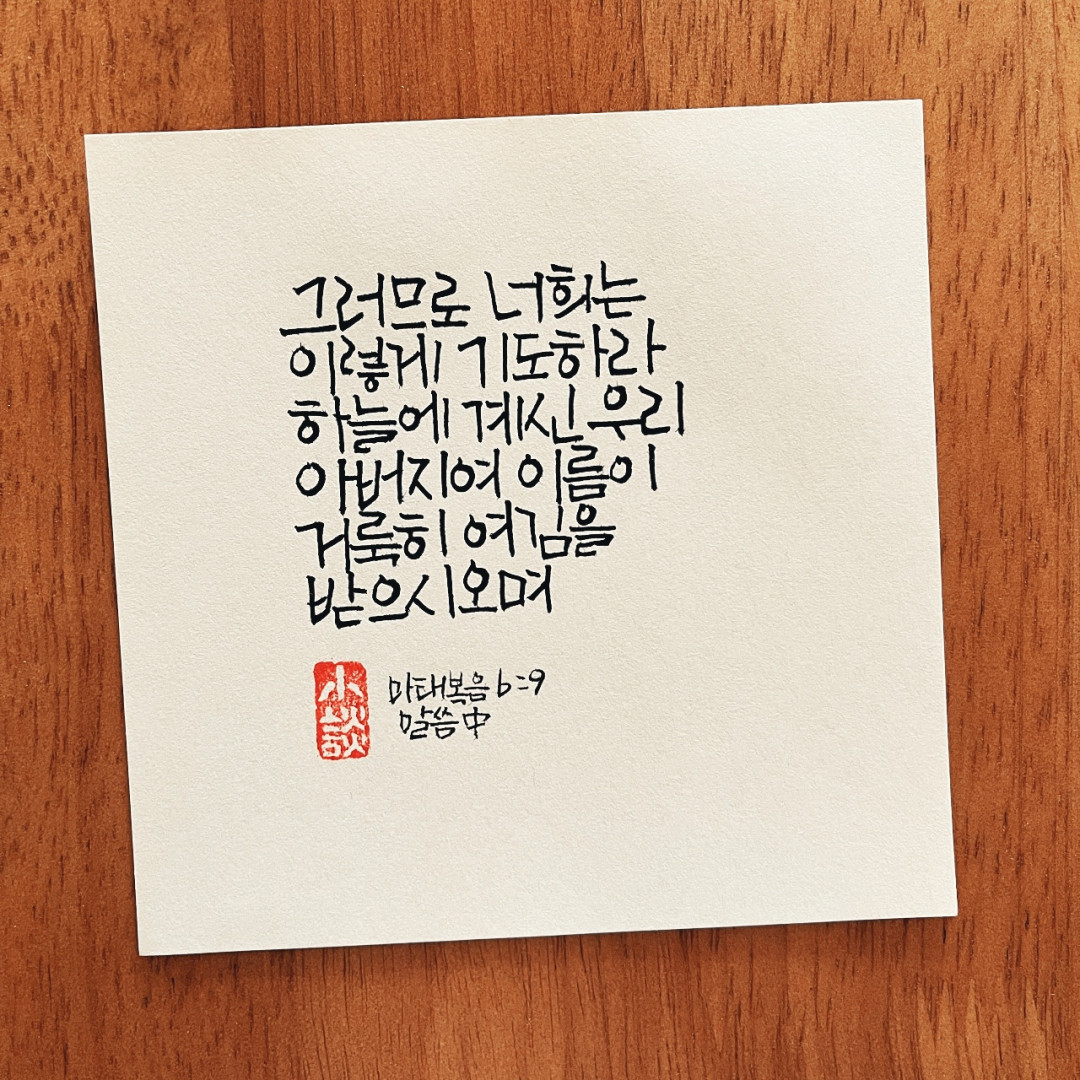 그러므로 너희는
이렇게 기도하라
하늘에 계신 우리
아버지여 이름이
거룩히 여김을
받으시오며
小談
마태복음 6:9
말씀 中